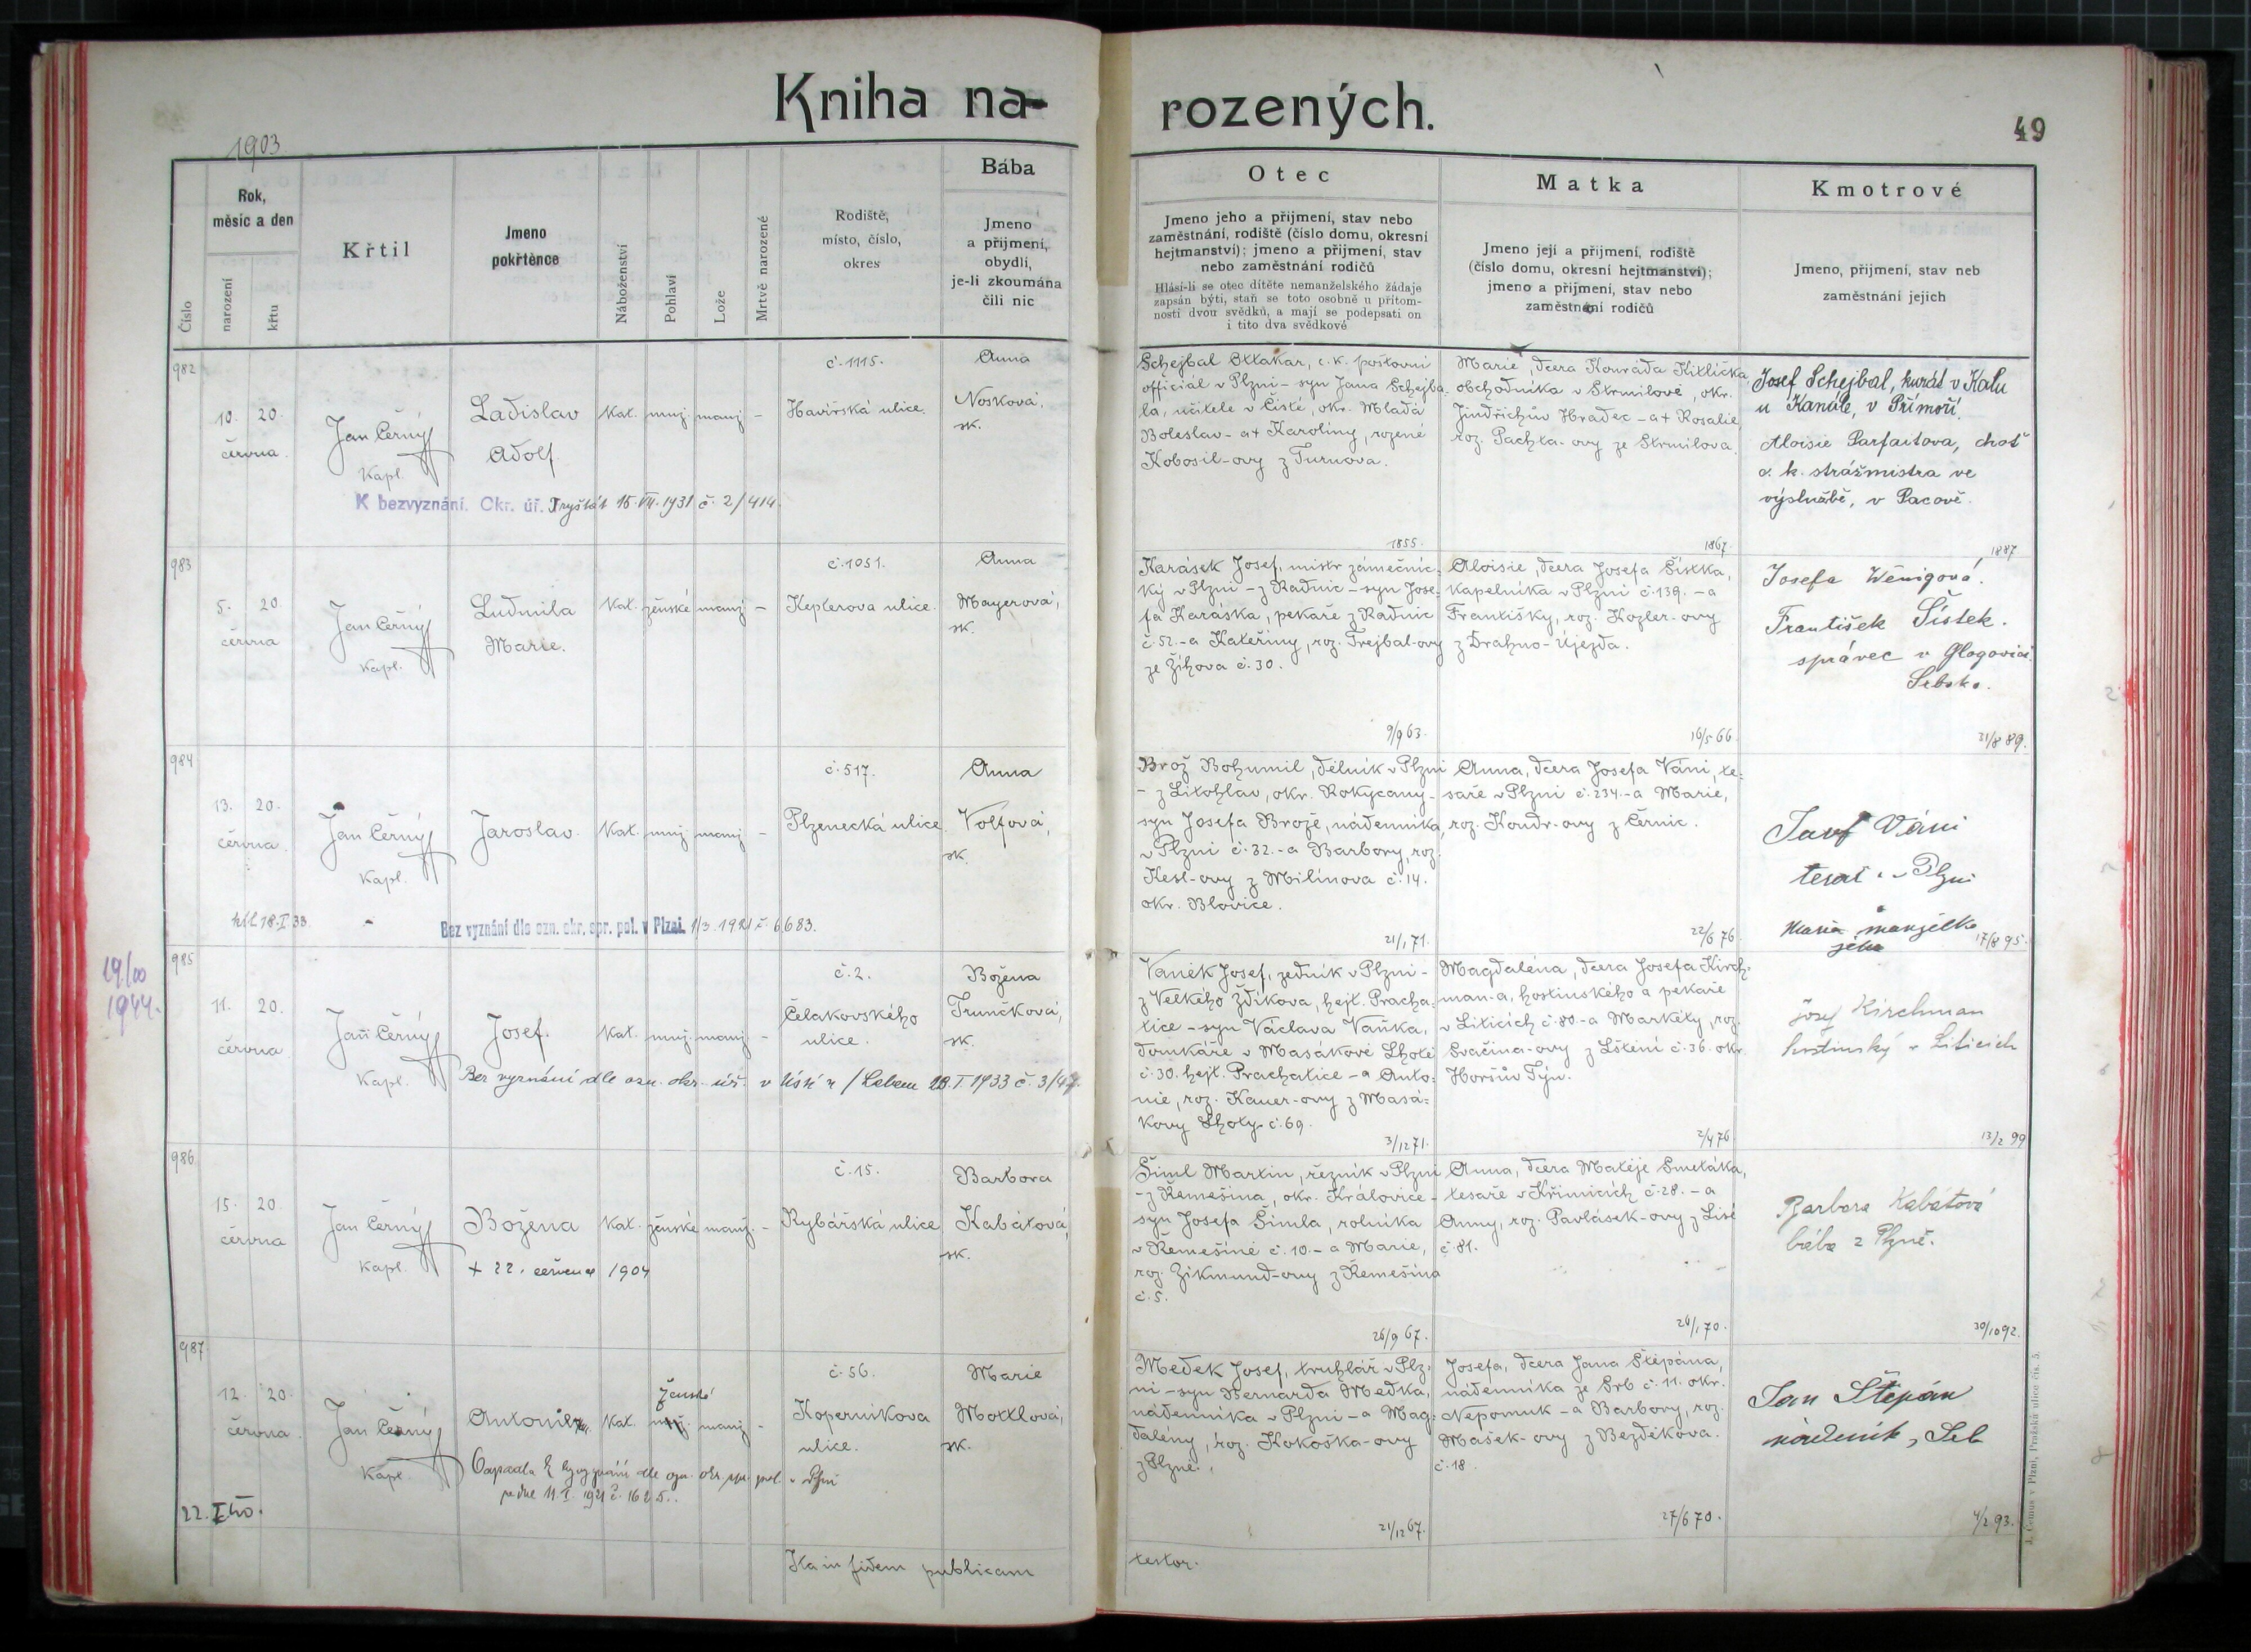 Kniha na-
rozených.
49
1903
Číslo
Rok,
měsíc a den
narození
křtu
Křtil
Jmeno
pokřtěnce
Náboženství
Pohlaví
Lože
Mrtvě narozené
Rodiště,
místo, číslo,
okres
Bába
Jmeno
a přijmení,
obydlí,
je-li zkoumána
čili nic
Otec
Jmeno jeho a přijmení, stav nebo
zaměstnání, rodiště (číslo domu, okresní
hejtmanství); jmeno a přijmení, stav
nebo zaměstnání rodičů
Hlásí-li se otec dítěte nemanželského žádaje
zapsán býti, staň se toto osobně u přítom-
nosti dvou svědků, a mají se podepsati on
i tito dva svědkové
Matka
Jmeno její a přijmení, rodiště
(číslo domu, okresní hejtmanství);
jmeno a přijmení, stav nebo
zaměstnání rodičů
Kmotrové
Jmeno, přijmení, stav neb
zaměstnání jejich
982
10. 20.
června
Jan Černý
Kapl.
Ladislav
Adolf
Kat. muž. manž. –
č. 1115.
Havířská ulice.
Anna
Nosková,
zk.
K bezvyznání. Okr. úř. Fryštát 15. VII. 1931 č. 2/414.
Schejbal Ottakar, c. k. poštovní
officiál v Plzni – syn Jana Schejba-
la, učitele v Čisté, okr. Mladá
Boleslav – a † Karolíny, rozené
Kobosil-ovy z Turnova.
1855.
Marie, dcera Konráda Kitlička,
obchodníka v Strmilově, okr.
Jindřichův Hradec – a † Rosalie,
roz. Pachta-ovy ze Strmilova.
1867.
Josef Schejbal, kurát v Kalu
u Kanále, v Přímoří.
Aloisie Parfaitova, choť
c. k. strážmistra ve
výslužbě, v Pacově.
1887
983
5. 20.
června
Jan Černý
Kapl.
Ludmila
Marie.
Kat. ženské manž. –
č. 1051.
Keplerova ulice.
Anna
Mayerová,
zk.
Karásek Josef, mistr zámečnic-
ký v Plzni – z Radnic – syn Jose-
fa Karáska, pekaře z Radnic
č. 52. – a Kateřiny, roz. Trejbal-ovy
ze Žihova č. 30.
9/9 63.
Aloisie, dcera Josefa Šístka,
kapelníka v Plzni č. 139. – a
Františky, roz. Kozler-ovy
z Drahno-Újezda.
16/5 66.
Josefa Wěnigová.
František Šístek.
správec v Glogovici
Srbsko.
21/8 89.
984
13. 20.
června
Jan Černý
Kapl.
Jaroslav.
Kat. muž. manž. –
č. 517.
Plzenecká ulice.
Anna
Volfová,
zk.
18. I 33.
Bez vyznání dle ozn. okr. spr. pol. v Plzni. 1/3. 1921 č. 6683.
Brož Bohumil, dělník v Plzni
– z Litohlav, okr. Rokycany –
syn Josefa Brože, nádenníka
v Plzni č. 32. – a Barbory, roz.
Kesl-ovy z Milínova č. 14.
okr. Blovice.
21/1 71.
Anna, dcera Josefa Váni, te-
saře v Plzni č. 234. – a Marie,
roz. Kondr-ovy z Černic.
22/6 76.
Váni
tesař v Plzni
Marie manželka
jeho
17/8 95.
19/00
1944.
985
11. 20.
června
Jan Černý
Kapl.
Josef.
Kat. muž. manž. –
č. 2.
Čelakovského
ulice.
Božena
Trunčková,
zk.
Bez vyznání dle ozn. okr. úř. v Ústí n/Labem 18. I 1933 č. 3/47
Vaněk Josef, zedník v Plzni –
z Velkého Zdíkova, hejt. Pracha-
tice – syn Václava Vaňka,
domkáře v Masákově Lhotě
č. 30. hejt. Prachatice – a Anto-
nie, roz. Kauer-ovy z Masá-
kovy Lhoty č. 69.
3/12 71.
Magdaléna, dcera Josefa Kirch-
man-a, hostinského a pekaře
v Liticích č. 80. – a Markéty, roz.
Svačina-ovy z Lštění č. 36. okr.
Horšův Týn.
2/4 76.
Josef Kirchman
hostinský v Liticích
13/2 99
986
15. 20.
června
Jan Černý
Kapl.
Božena
+ 22. července 1904
Kat. ženské manž. –
č. 15.
Rybářská ulice
Barbora
Kabátová,
zk.
Šiml Martin, řezník v Plzni
– z Řemešína, okr. Královice –
syn Josefa Šimla, rolníka
v Řemešíně č. 10. – a Marie,
roz. Zikmund-ovy z Řemešína
č. 5.
26/9 67.
Anna, dcera Matěje Smetáka,
tesaře v Křimicích č. 28. – a
Anny, roz. Pavlásek-ovy z Lisé
č. 81.
26/1 70.
Barbora Kabátová
bába z Plzně.
30/10 92.
987
12. 20.
června
Jan Černý
Kapl.
Antonie
ženské
Kat. muž. manž. –
č. 56.
Koperníkova
ulice.
Marie
Mottlová,
zk.
22. I
v Plzni
Medek Josef, truhlář v Plz-
ni – syn Bernarda Medka,
nádenníka v Plzni – a Mag-
dalény, roz. Kokoška-ovy
z Plzně.
21/12 67.
Josefa, dcera Jana Štěpána,
nádenníka ze Srb č. 11. okr.
Nepomuk – a Barbory, roz.
Mašek-ovy z Bezděkova.
č. 18.
27/6 70.
Jan Štěpán
nádeník, Srb
4/2 93.
Ita in fidem publicam
testor.
J. Čemus v Plzni, Pražská ulice čís. 5.